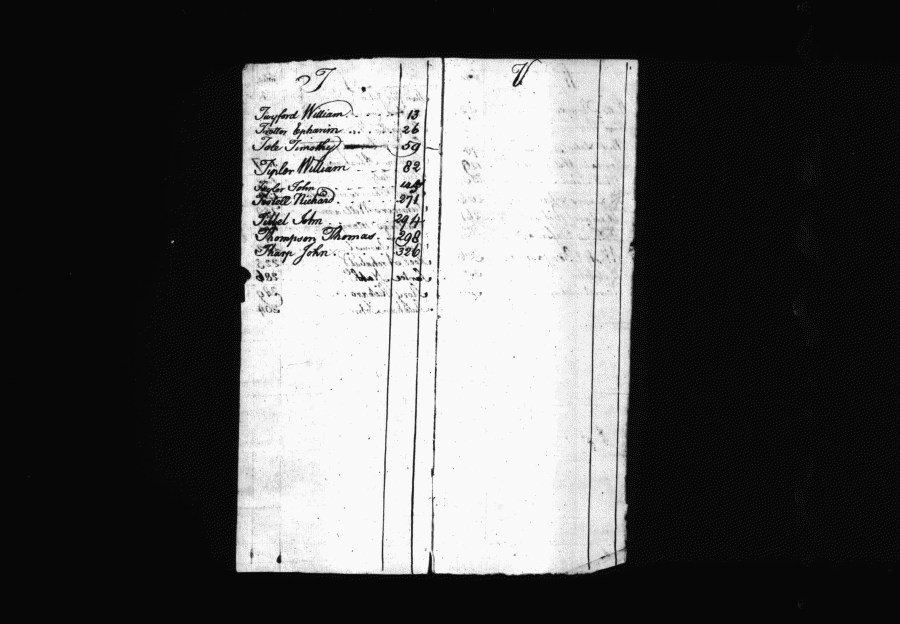 T
Twyford William 13
Trotter Epharim 26
Tole Timothy 59
Tipler William 82
Taylor John
Tootell Richard 271
John 294
Thompson Thomas 298
Tharp John 326
V